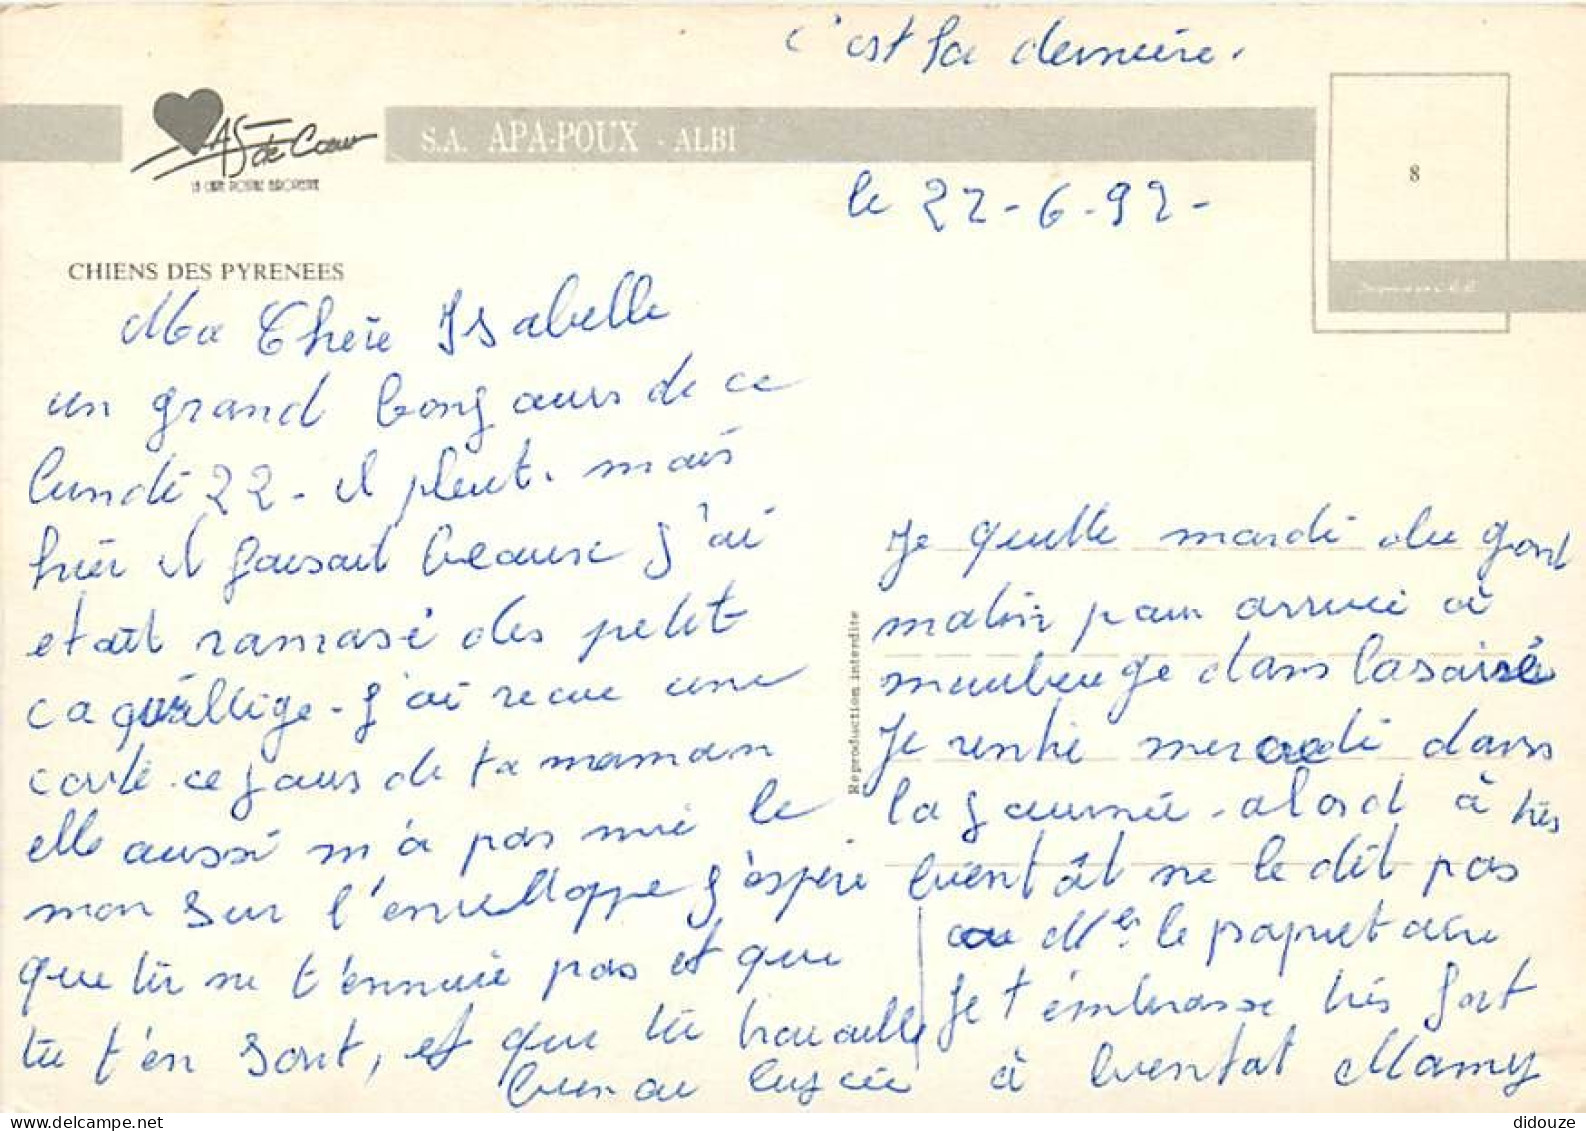 c'est la dernière.
AS de Cœur
LA CARTE POSTALE EUROPEENNE
S.A. APA-POUX - ALBI
8
le 22-6-92-
CHIENS DES PYRENEES
Ma Chère Isabelle
un grand bonjours de ce
lundi 22 - il pleut. mais
hier il faisait beause j'ai
etait ramasé des petit
caquillige - j'ai recue une
carte ce jous de ta maman
elle aussi m'a pas mie le
mon sur l'envelloppe j'éspère
que tu ne t'énnuie pas et que
tu t'en sort, et que tu travaille
bien au luscée
Je quitte mardi du gont
matin pour arrivé à
maubeuge dans lasairé
Je rentre mercredi dans
la journée - alord à très
bientât ne le dit pas
au Mr le propriet aire
Je t'émbrasse très fort
à bientat Mamy
Reproduction interdite
didouze